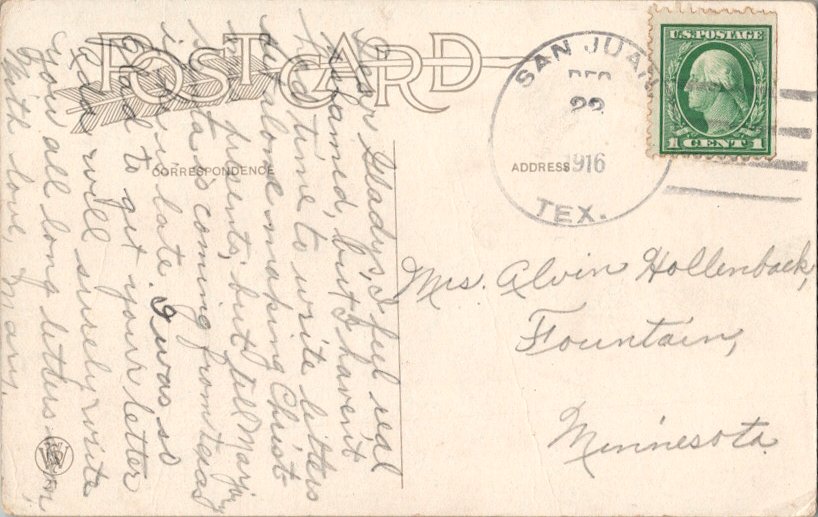 POST CARD
CORRESPONDENCE
ADDRESS
SAN JUAN
DEC
22
1916
TEX.
U.S. POSTAGE
1 CENT 1
Mrs. Alvin Hollenback,
Fountain,
Minnesota
Dear Gladys, I feel real
ashamed, but I haven't
had time to write letters
let alone making Christ-
presents, but tell Marjory
Santa is coming from Texas
late. I was so
glad to get your letter
and will surely write
you all long letters soon,
With love, Mary.